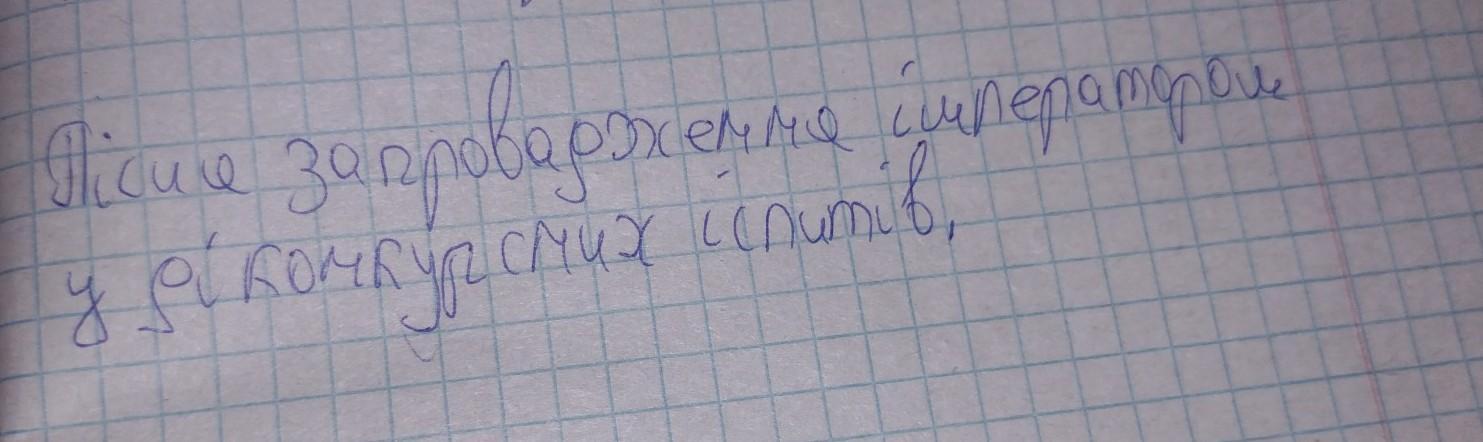 Після запровадження імператором
у ді конкурсних іспитів,